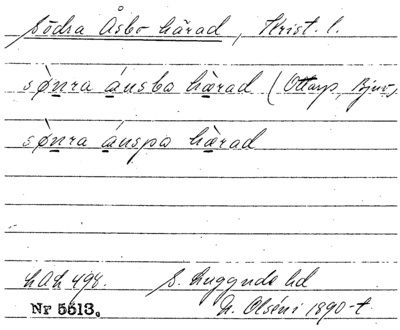 Södra Åsbo härad, Krist. l.
sønra áusbo hærad (Ottarp, Bjuv,
sønra áuspo hærad
LAL 498. S. Luggude hd
Nr 5513. N. Olséni 1890-t